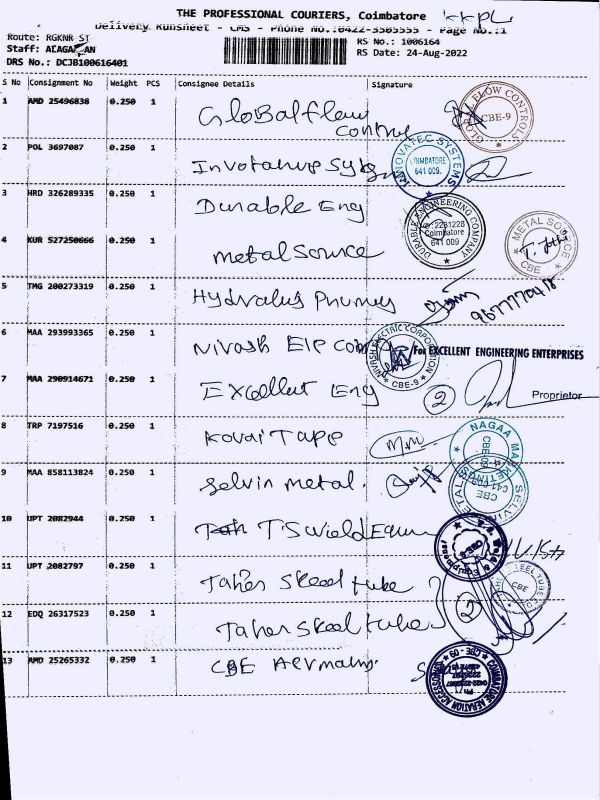 THE PROFESSIONAL COURIERS, Coimbatore KKPL
Delivery Runsheet - CMS - Phone No.:0422-3505555 - Page No.:1
Route: RGKNR ST
RS No.: 1006164
Staff:
RS Date: 24-Aug-2022
DRS No.: DCJB100616401
S No Consignment No Weight PCS Consignee Details Signature
1 AMD 25496838 0.250 1 Globalflow control GLOBAL FLOW CONTROLS CBE-9
2 POL 3697087 0.250 1 INNOVATEC SYSTEMS COIMBATORE 641 009.
3 HRD 326289335 0.250 1 Durable Eng DURABLE ENGINEERING COMPANY 2231228 Coimbatore 641 009
4 KUR 527250666 0.250 1 metal source METAL SOURCE CBE
5 TMG 200273319 0.250 1
6 MAA 293993365 0.250 1 Nivash Ele NIVASH ELECTRIC CORPORATION CBE-9
For EXCELLENT ENGINEERING ENTERPRISES
7 MAA 290914671 0.250 1 Excellent Eng 2 Proprietor
8 TRP 7197516 0.250 1 Kovai Tape NAGAA MARKETING CBE
9 MAA 858113824 0.250 1 Selvin metal. SELVIN METALS CBE
10 UPT 2082944 0.250 1 T.S weld Equip
11 UPT 2082797 0.250 1 Taher Steel tube CBE
12 EDQ 26317523 0.250 1 Taher Steel tube 2
13 AMD 25265332 0.250 1 CBE COIMBATORE AERATION ACCESSORIES CBE - 09